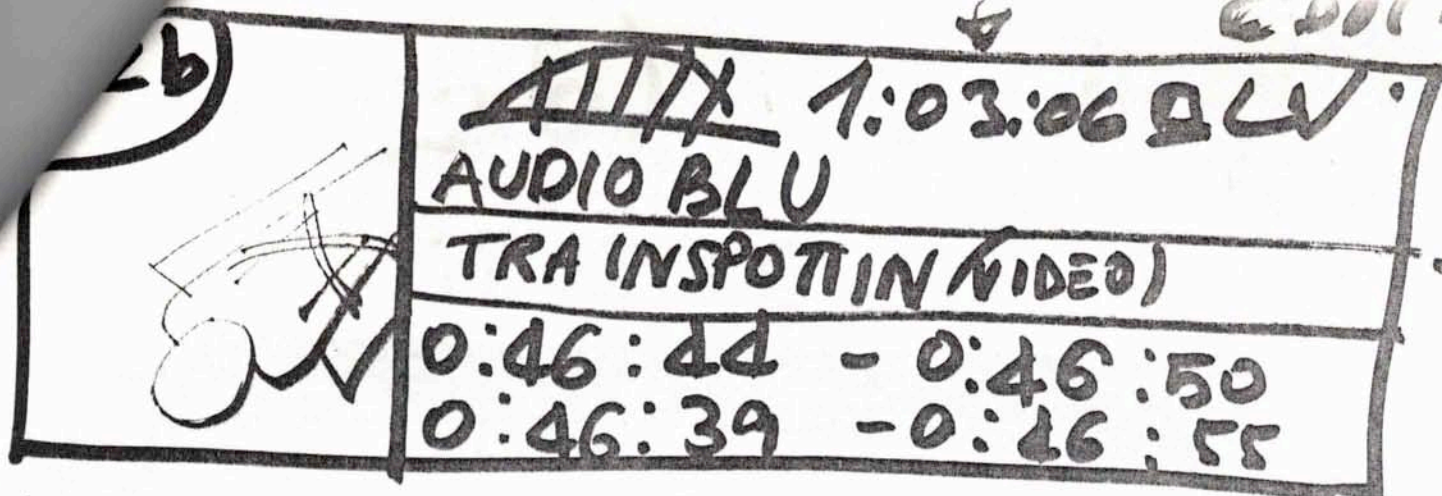 2b
1:03:06 BLU
AUDIO BLU
TRAINSPOTTIN (VIDEO)
0:46:44 - 0:46:50
0:46:39 - 0:46:55